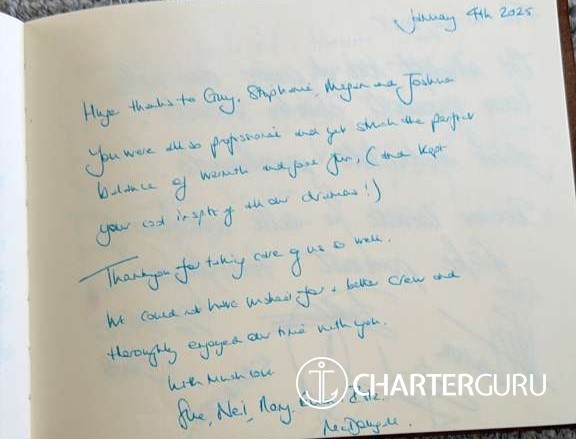 January 4th 2025
Huge thanks to Guy, Stephanie, Megan and Joshua
You were all so professional and yet struck the perfect
balance of warmth and pure fun, (and kept
your cool inspite of all our dramas!)
Thankyou for taking care of us so well.
We could not have wished for a better crew and
thoroughly enjoyed our time with you.
With much love
Sue, Neil, Rory,
CHARTERGURU